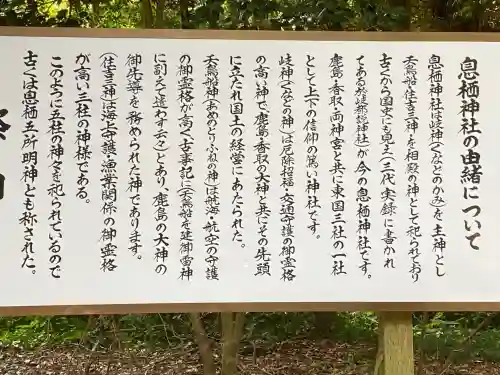 息栖神社の由緒について
息栖神社は岐神(くなどのかみ)を主神とし
天鳥船・住吉三神を相殿の神として祀られており
古くから国史にも見え(三代実録)に書かれ
てある於岐都説神社が今の息栖神社です。
鹿島・香取両神宮と共に東国三社の一社
として上下の信仰の篤い神社です。
岐神(くなどの神)は厄除招福・交通守護の御霊格
の高い神で鹿島・香取の大神と共にその先頭
に立たれ国土の経営にあたられた。
天鳥船神(あめのとりふねの神)は航海・航空の守護
の御霊格が高く古事記に(天鳥船を建御雷神
に副えて遣わす云々)とあり、鹿島の大神の
御先導を務められた神であります。
(住吉三神)は海上守護・漁業関係の御霊格
が高い三柱の神様である。
このように五柱の神々を祀られているので
古くは息栖五所明神とも称された。